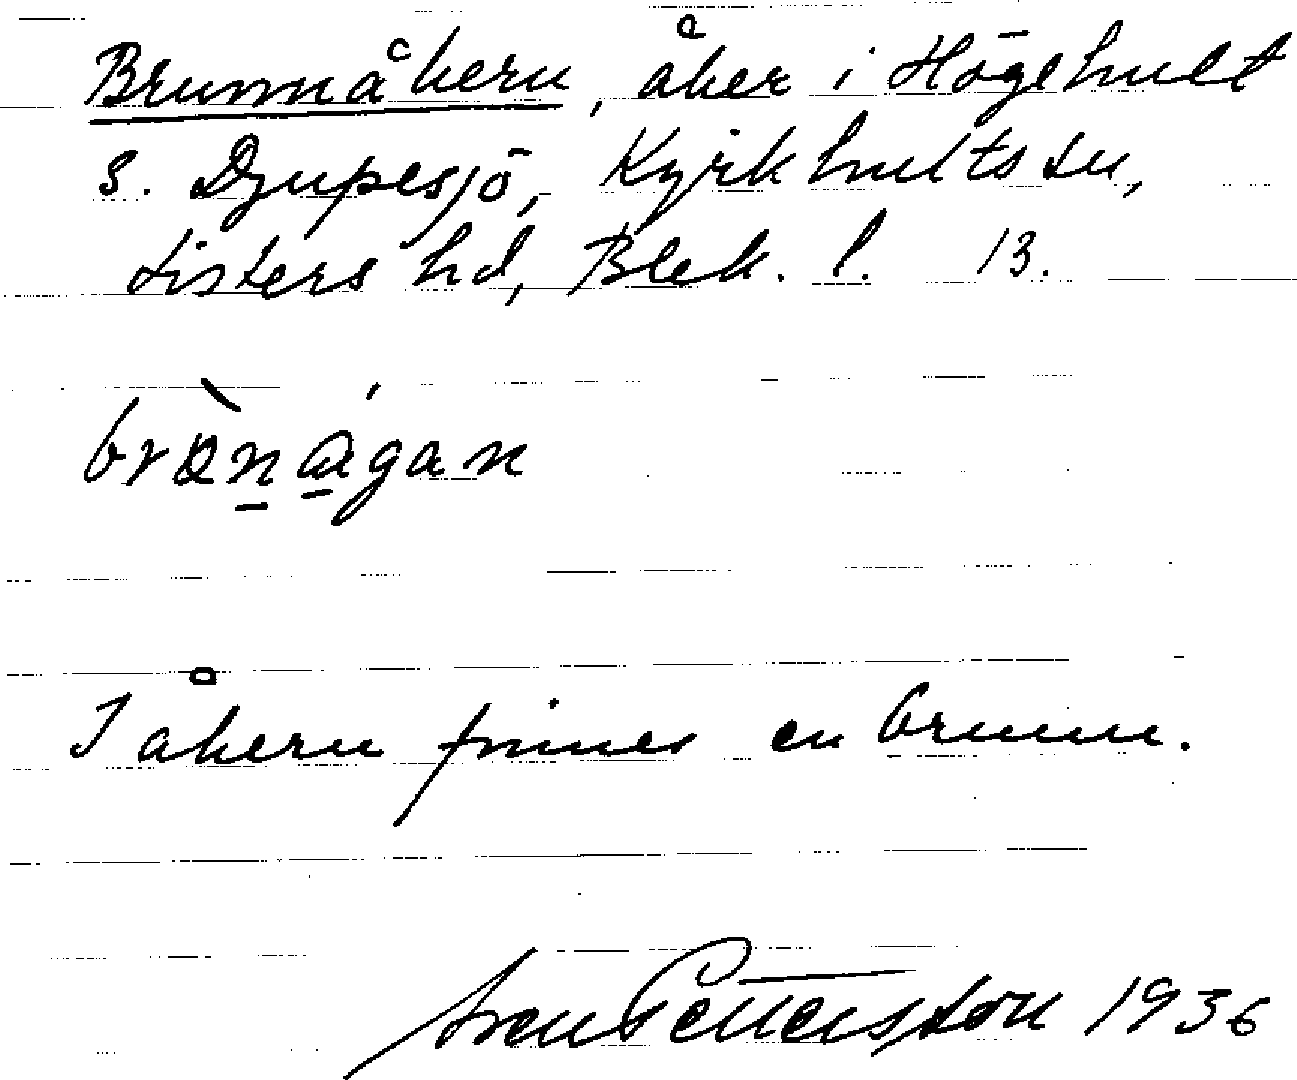 Brunnåkern, åker i Högehult
S. Djupesjö, Kyrkhults sn,
Listers hd, Blek. l. 13.
I åkern finnes en brunn.
Sven Pettersson 1936